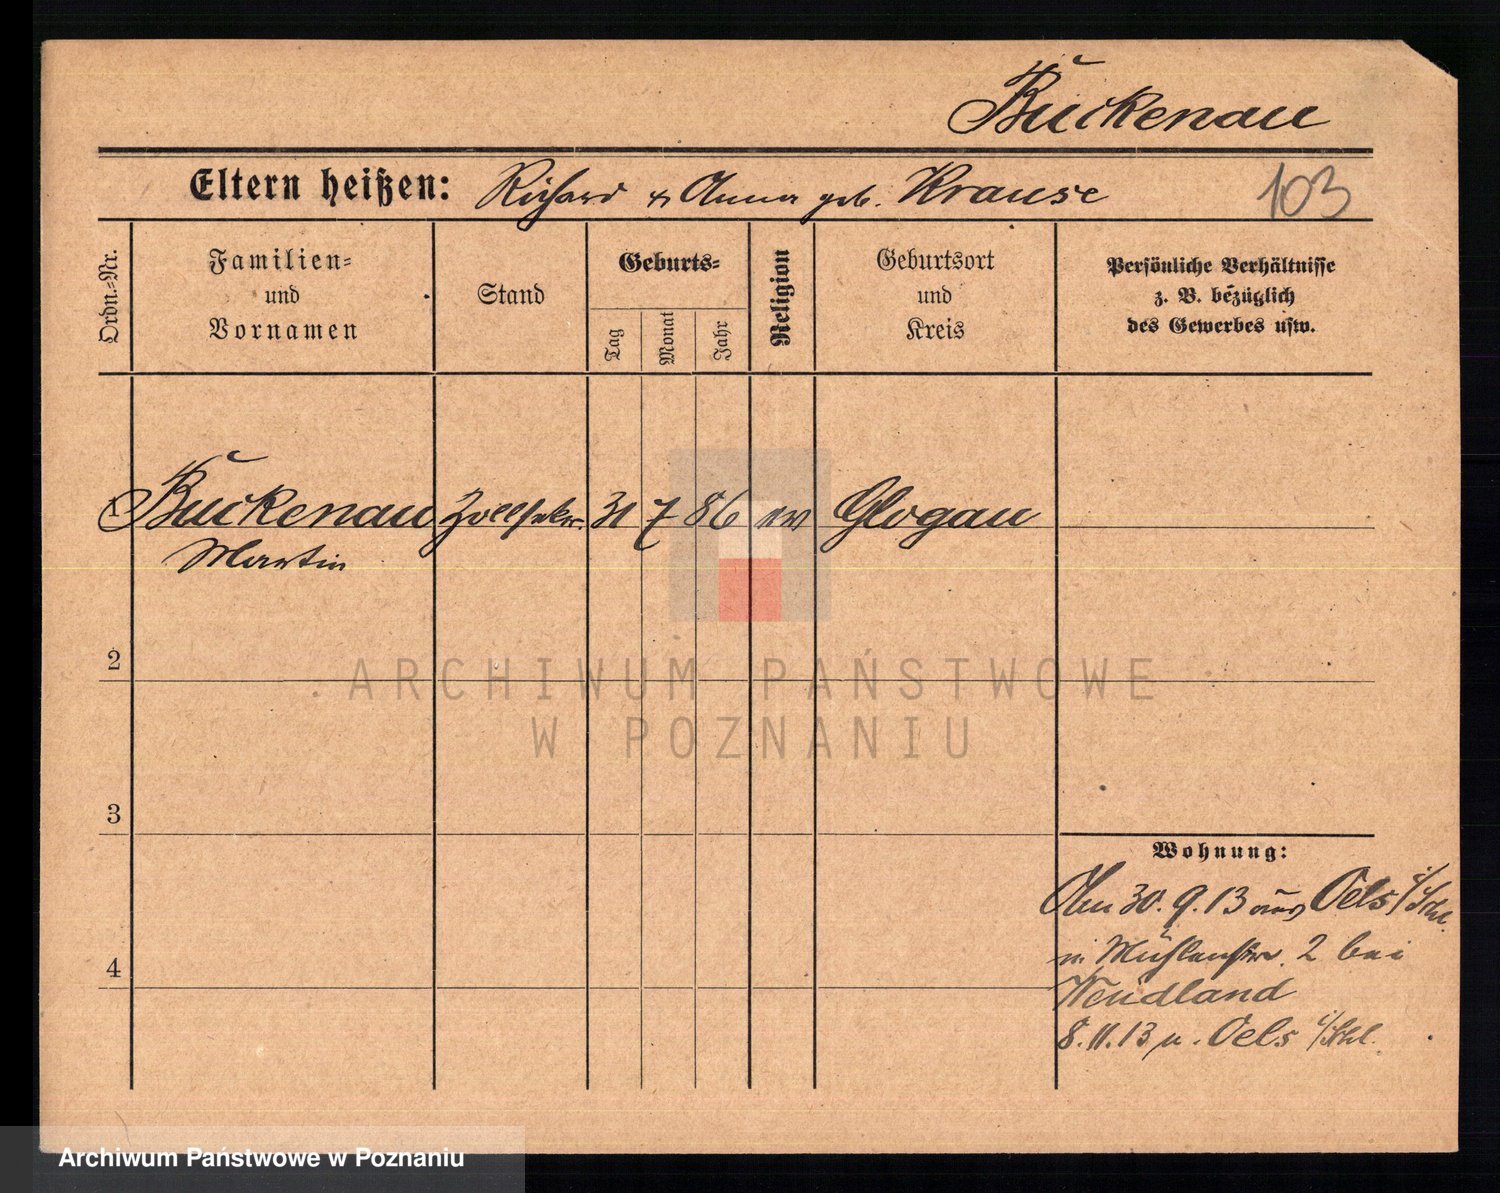 Buckenau
Eltern heißen: Richard & Anna geb. Krause 103
Ordn.-Nr.
Familien-
und
Vornamen
Stand
Geburts-
Tag
Monat
Jahr
Religion
Geburtsort
und
Kreis
Persönliche Verhältnisse
z. B. bezüglich
des Gewerbes usw.
1 Buckenau Zollsekr. 31 7 86 ev Glogau
Martin
2
3
4
Wohnung:
Am 30.9.13 aus Oels i/Schl.
n. Mühlenstr. 2 bei
Wendland
8.11.13 n. Oels i/Schl.
ARCHIWUM PAŃSTWOWE
W POZNANIU
Archiwum Państwowe w Poznaniu